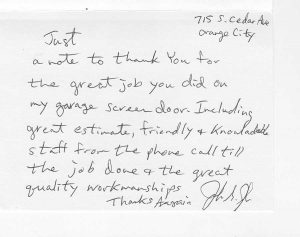 715 S. Cedar Ave
Orange City
Just
a note to thank You for
the great job you did on
my garage screen door. Including
great estimate, friendly & knowladable
staff from the phone call till
the job done & the great
quality workmanships
Thanks Again